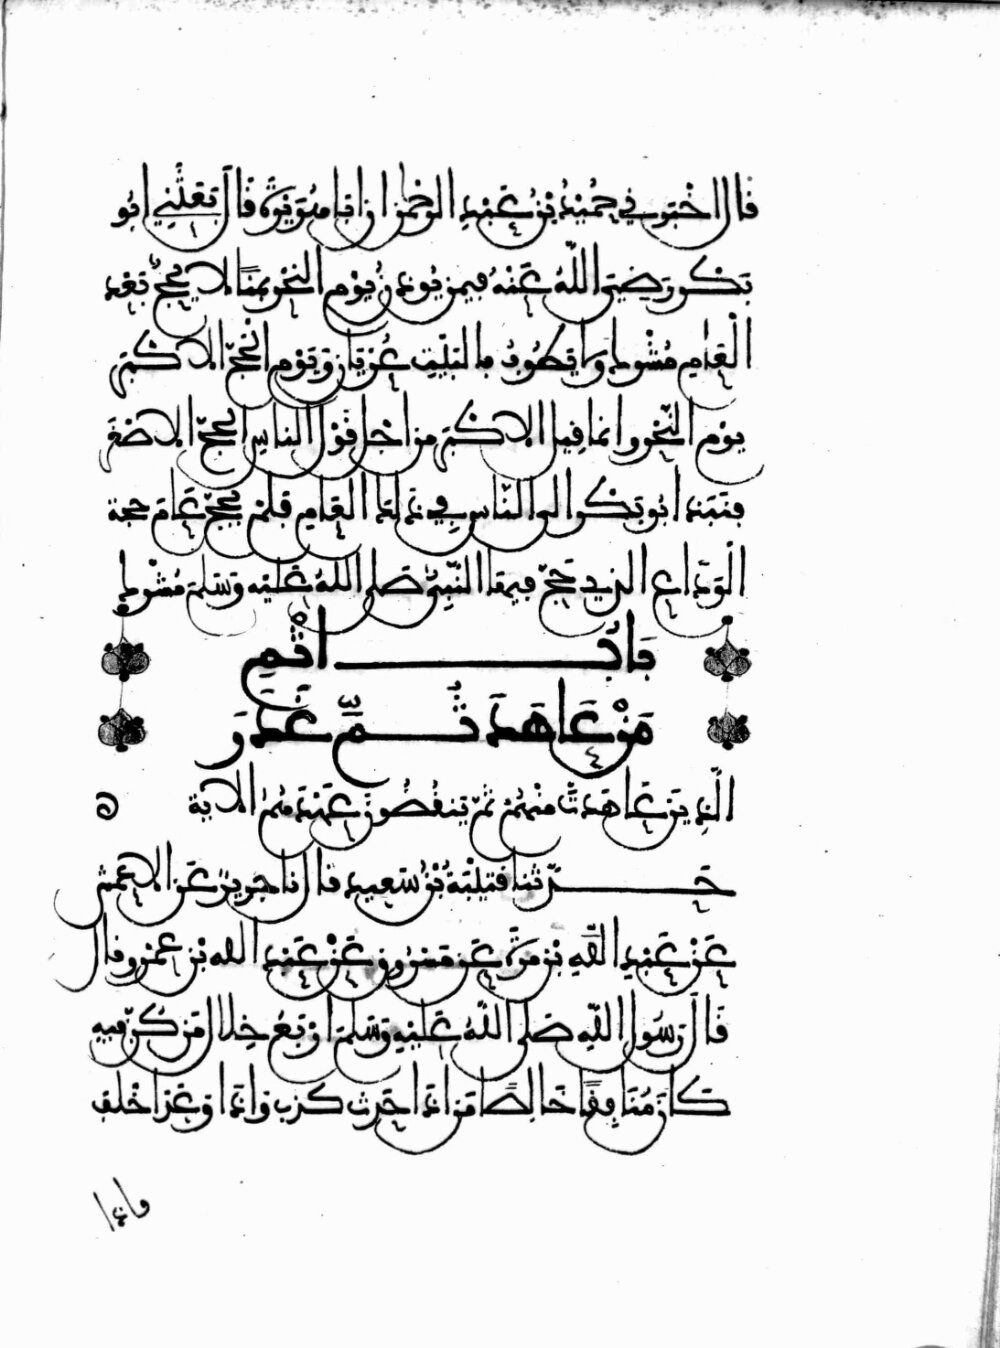 قال اخبرني حُميدُ بنُ عَبدِ الرحمن ان ابا هريرة قال بَعَثَني ابو
بَكر رضي اللهُ عَنهُ فيمن يُوذنُ يوْم النحر بمنًا لا يحجُّ بَعد
الْعام مُشْرك ولا يطوفُ بالبيت عُريان ويَوْم الحجّ الاكبر
يوْم النحر وانما قيل الاكبر من اجل قوْل الناس الحجّ الاصغر
فنبذ ابو بَكر الى النّاس في ذلك العام فلمْ يحجّ عَام حجة
الْوداع الذي حَجّ فيه النَّبيُّ صَلى اللهُ عَليه وسَلم مُشْرك
بَابُ اثْمِ
مَنْ عَاهَدَ ثُمّ غَدَرَ
الَّذين عَاهَدتَّ منْهُمْ ثمّ يَنقُضُون عَهْدَهُمُ الاية
حَدّثنا قتيْبَة بْنُ سَعيد قال نا جرير عَن الاعمش
عَنْ عَبْدِ اللهِ بْن مُرّة عَن مَسْرُوق عَنْ عَبْد الله بْن عمْرو قال
قَالَ رَسُول اللهِ صَلى اللهُ عَليْهِ وسَلم ارْبَعُ خلال مَن كُنّ فيهِ
كَانَ مُنَافِقًا خَالِصًا مَن اذا حَدث كذب واذا وعَدَ اخْلف
واذا